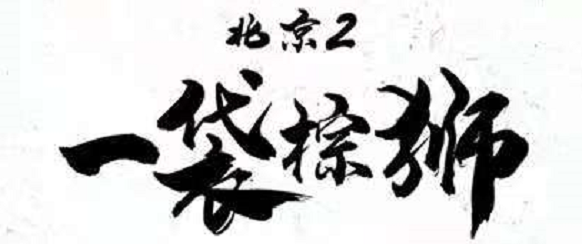 北京2
一袋棕狮